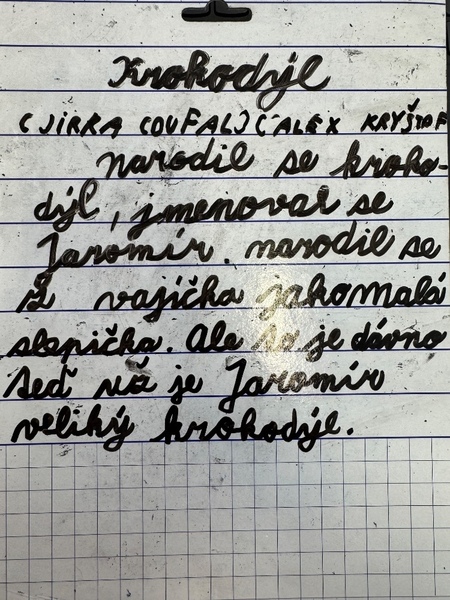 Krokodýl
(JIRKA COUFAL)(ALEX KRYŠTOF
narodil se kroko-
dýl, jmenoval se
Jaromír. narodil se
z vajíčka jakomalá
slepička. Ale to je dávno
teď už je Jaromír
veliký krokodýl.